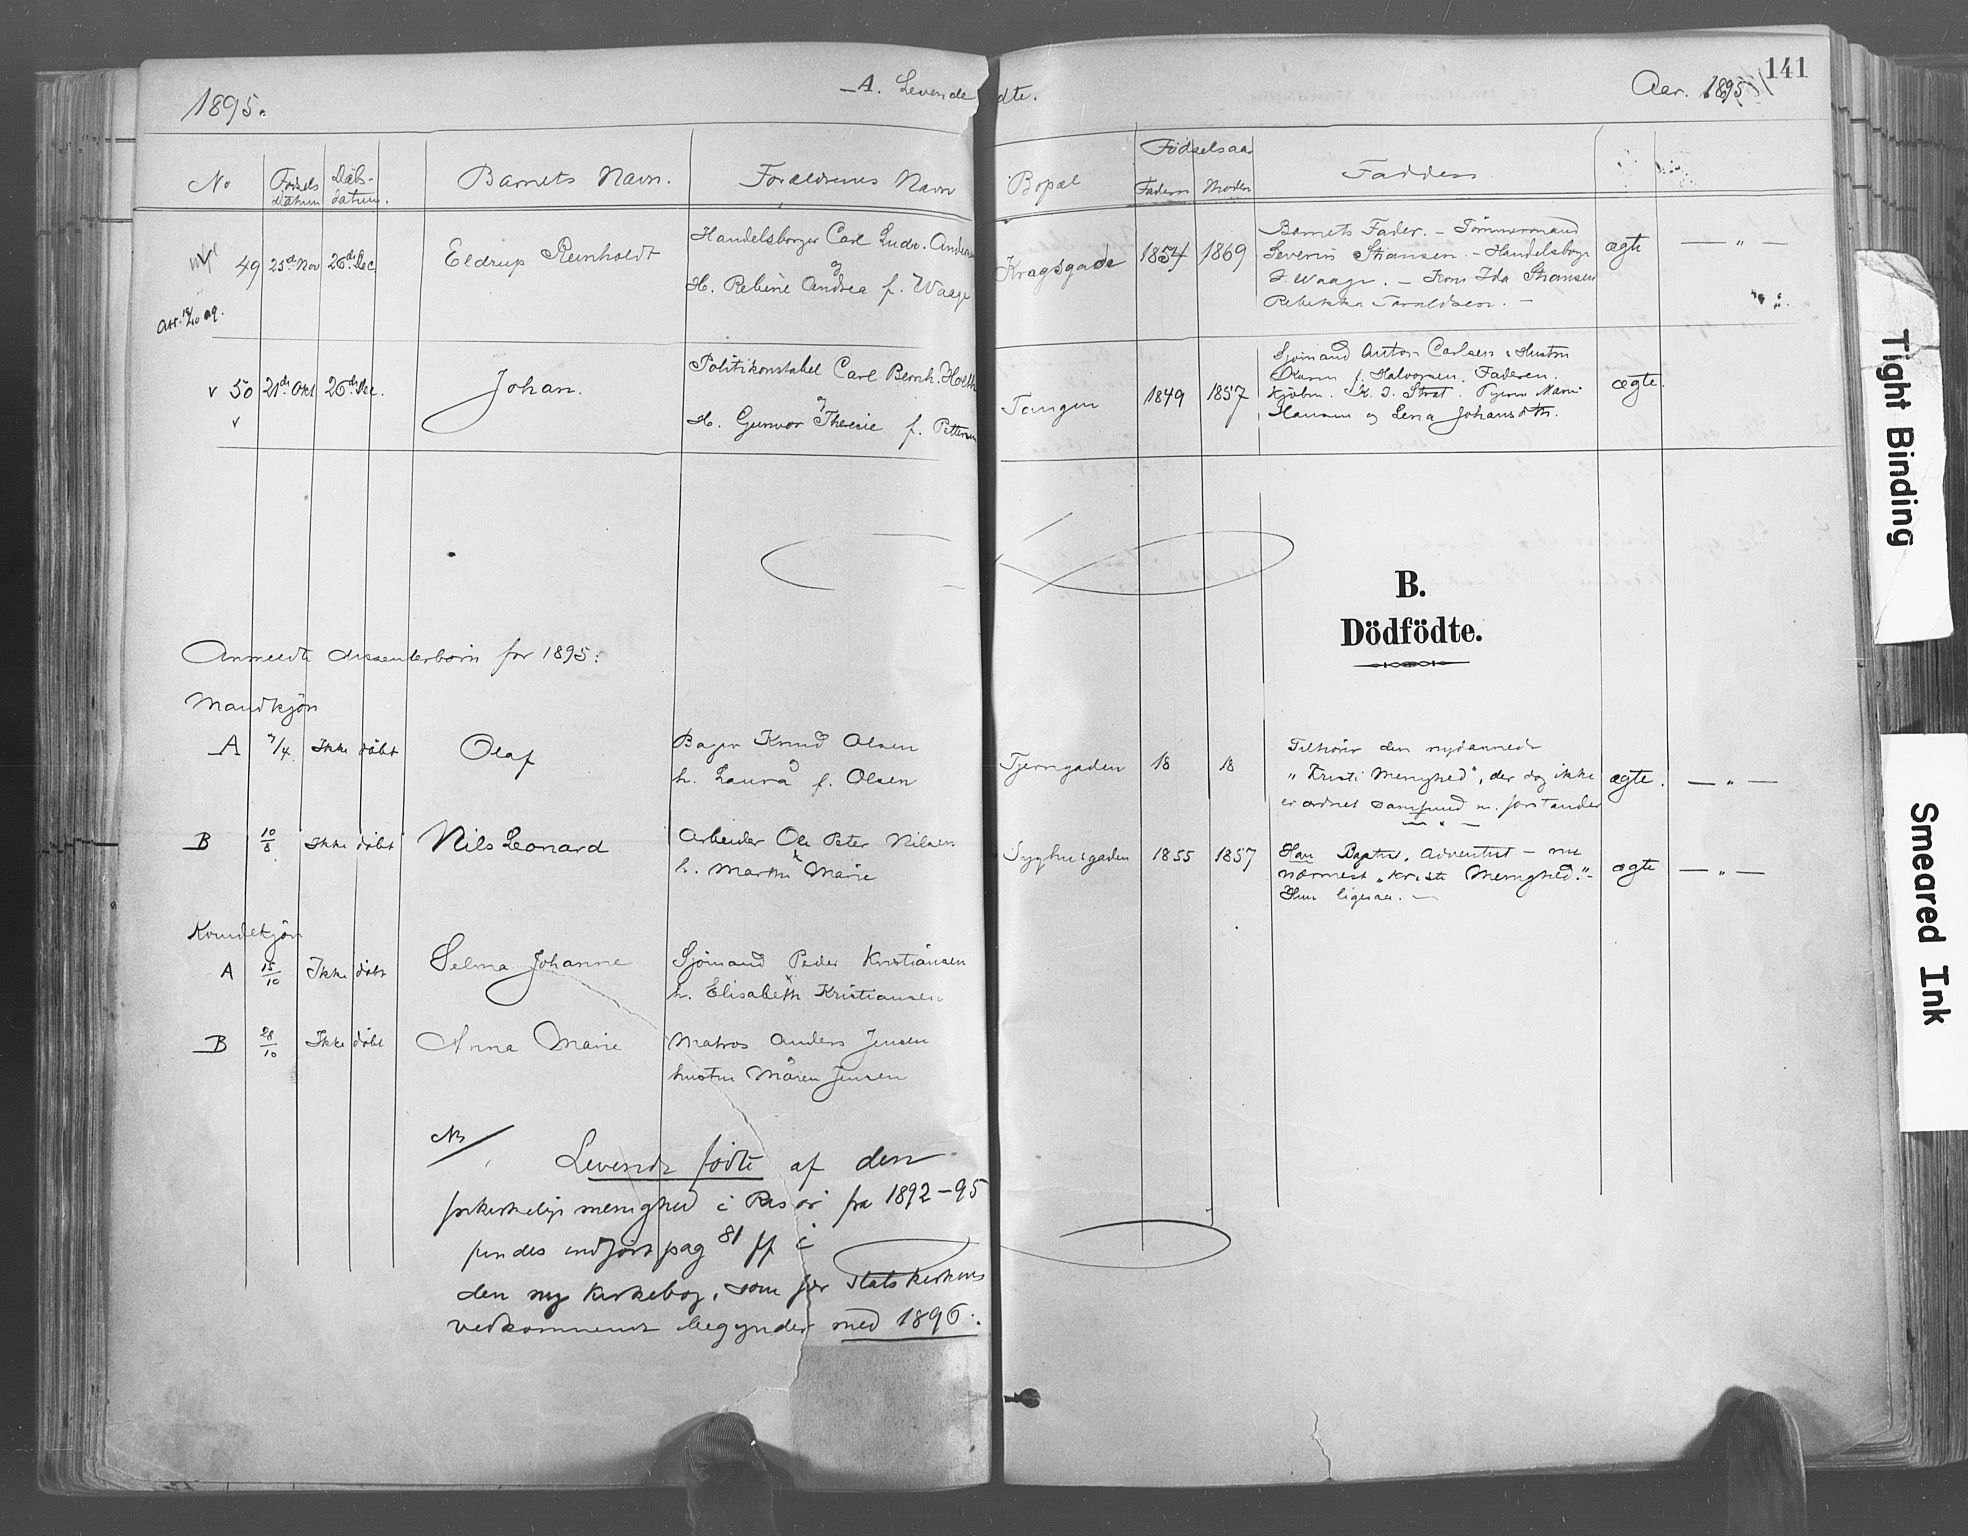 141
1895.
A. Levende
dte.
Aar. 1895
No
Fødsels datum
Dåbs-datum.
Barnets Navn.
Forældrenes Navn
Bopæl
Fødselsaar
Faderen
Moder
Faddere
49 25de Nov 26de Dec Eldrup Reinholdt
Handelsborger Carl Ludv. Andersen
og
H. Rebine Andrea f. Waage
Kragsgade 1854 1869
Barnets Fader. – Tømmermand
Severin Thransen. – Handelsborger
J. Waage. – Kone Ida Thransen
Rebekka Taraldsen. –
ægte — „ —
Att. 09.
v 50 21de Okt 26de Dec. Johan.
v
Politikonstabel Carl Bernh. Holth
og
H. Gunvor Therese f. Pettersen
Tangen 1849 1857
Sjømand Anton Carlsen & Hustru
f. Halvorsen. Faderen.
Kjøbm. Pigerne Marie
Hansen og Lena Johansdtr.
ægte.
B.
Dödfödte.
Anmeldte dissenterbørn for 1895:
Mandkjøn
A 7/4 Ikke døbt Olaf
Bager Knud Olsen
og
h. Laura f. Olsen
Tjerngaden 18 18
Tilhører den nydannede
„Kristi Menighed", der dog ikke
er ordnet samfund m. forstander
— „ —
ægte. — „ —
B 10/8 Ikke døbt Nils Leonard
Arbeider Ole Peter Nilsen
h. Marthe Marie
Syghusgaden 1855 1857
Han Baptist, Adventist – nu
nærmest „Kristi Menighed."–
Hun ligesaa. —
ægte — „ —
Kvindekjøn
A 15/10 Ikke døbt Selma Johanne
Sjømand Peder Kristiansen
h. Elisabeth Kristiansen
B 28/10 Ikke døbt Anna Marie
Matros Anders Jensen
og
hustru Maren Jensen
NB
Levende fødte af den
frikirkelige menighed i Risør fra 1892–95
findes indført pag 81 ff i
den ny kirkebog, som for statskirkens
vedkommende begynder med 1896:.
Tight Binding
Smeared Ink